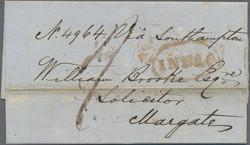 N. 4964. Via Southampton
INDIA
William Brooke Esqre
Solicitor
Margate